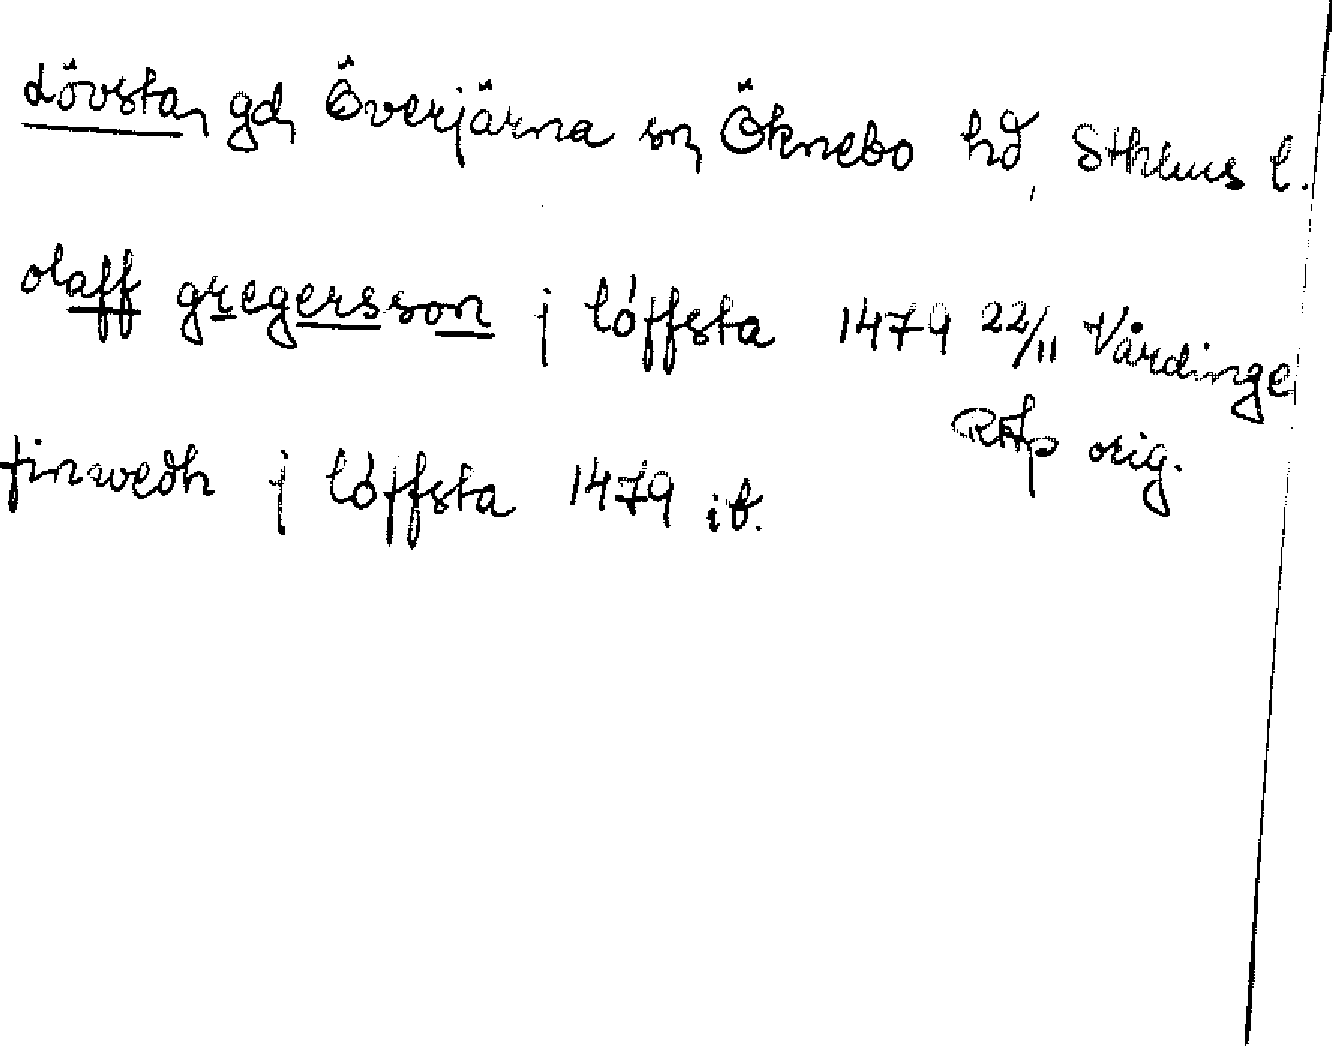 Lövsta, gd, Överjärna sn, Öknebo hd, Sthlms l.
olaff gregersson j lóffsta 1479 22/11 Vårdinge
RAp orig.
finwedh j lóffsta 1479 ib.